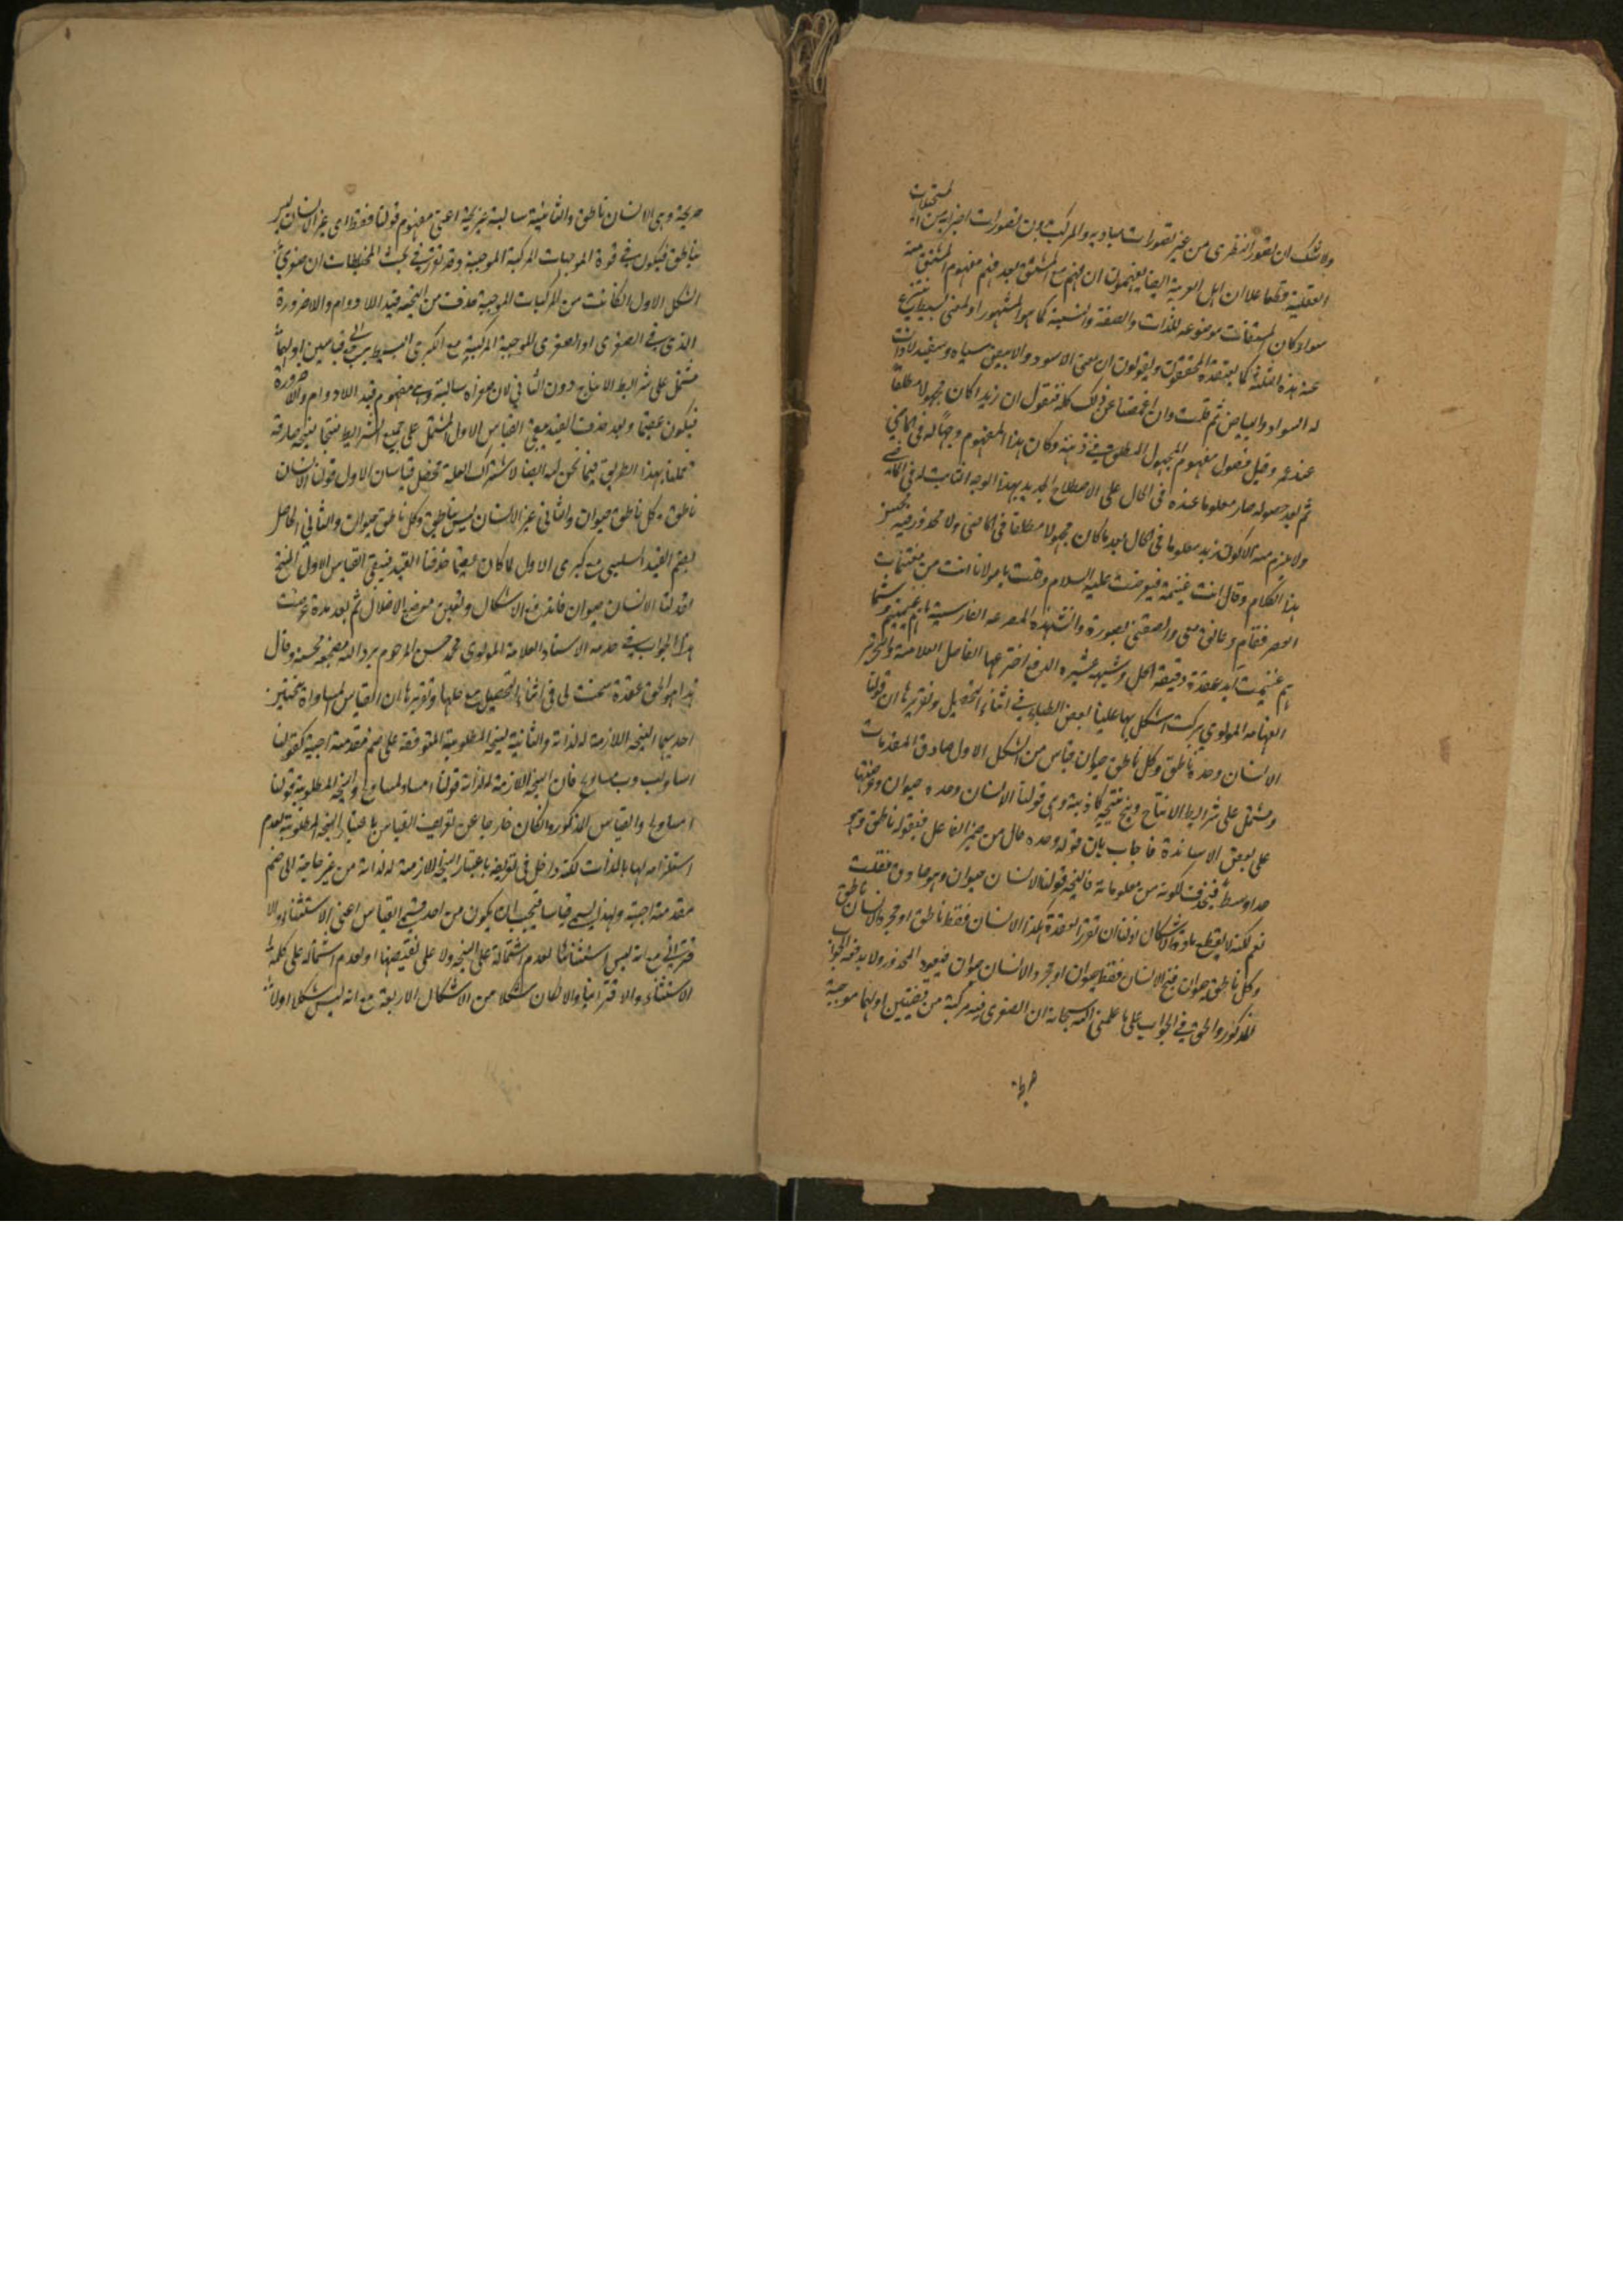 ولا شك ان تصور النظري من غير تصورات مباديه والمركب بدون تصورات اجزائه من المستحيلات
العقلية وقطعا علاان اهل العربية ايضا يفهمون ان فهم المشتق بعد فهم مفهوم المشتق منه
سواء كان المشتقات موضوعه للذات والصفة والنسبة كما هو المشهور او لمعنى بسيط ينتزع
عنه هذه الثلثة كما يعتقده المحققون ويقولون ان معنى الاسود والابيض سياه وسفيد
له السواد والبياض ثم قلت وان اغمضنا عن ذلك كله فنقول ان زيدا كان مجهولا مطلقا
عند عمرو قبل حصول مفهوم المجهول المطلق في ذهنه وكان هذا المفهوم وجها له في الماضي
ثم بعد حصوله صار معلوما عنده في الحال على الاصطلاح الجديد بهذا الوجه الثابت له في الماضي
ولا يلزم منه الا كون زيد معلوما في الحال بعد ما كان مجهولا مطلقا في الماضي ولا محذور فيه
هذا الكلام وقال انت غنيمة فعرضت عليه السلام وقلت يا مولانا انت من مغتنمات
العصر فقام وعانقني والصقني بصورة وانشد هذه المصرعه الفارسية ما هم غنيمتيم وشما
هم غنيمت ايد عقدة دقيقة الحل وشبهة عسيرة الدفع اخترعها الفاضل العلامة والنحرير
الفهامه المولوي بركت اشكل بها علينا بعض الطلباء في اثناء التحصيل وتقريرها ان قولنا
الانسان وحده ناطق وكل ناطق حيوان قياس من الشكل الاول صادق المقدمات
ومشتمل على شرائط الانتاج وينتج نتيجة كاذبة وهي قولنا الانسان وحده حيوان وعرضتها
على بعض الاساتذة فاجاب بان قوله وحده حال من ضمير الفاعل في قوله ناطق وهو
حد اوسط فيحذف لكونه من معلوماته فالنتيجة قولنا الانسان حيوان وهو صادق فقلت
نعم لكنه لا يقطع مادة الاشكال اذ لنا ان نقرر العقدة هكذا الانسان فقط ناطق او مجرد الانسان ناطق
وكل ناطق حيوان ينتج الانسان فقط حيوان او مجرد الانسان حيوان فيعود المحذور ولا يدفعه الجواب
المذكور والحق في الجواب على ما علمني الله سبحانه ان الصغرى فيه مركبة من قضيتين اولهما موجبة
صريحة
صريحة وهي الانسان ناطق والثانية سالبة غير صريحة اعني مفهوم قولنا فقط اي غير الانسان ليس
بناطق فيكون في قوة الموجبات المركبة الموجبة وقد تقرر في بحث المختلطات ان صغرى
الشكل الاول اذا كانت من المركبات الموجبة حذفت من النتيجة قيد اللادوام واللاضرورة
الذي في الصغرى اذ الصغرى الموجبة المركبة مع الكبرى البسيطة في قوة قياسين اولهما
مشتمل على شرائط الانتاج دون الثاني لان صغراه سالبة وهي مفهوم قيد اللادوام واللاضرورة
فيكون عقيما وبعد حذف القيد يبقى القياس الاول المشتمل على جميع الشرائط منتجا نتيجة صادقة
عملنا بهذا الطريق فيما نحن فيه ايضا لاشتراك العلة تحصل قياسان الاول قولنا الانسان
ناطق وكل ناطق حيوان والثاني غير الانسان ليس بناطق وكل ناطق حيوان والثاني الحاصل
بضم القيد السلبي مع كبرى الاول لما كان عقيما حذفنا القيد فيبقى القياس الاول المنتج
لقولنا الانسان حيوان فاندفع الاشكال وتعين موضع الاضلال ثم بعد مدة عرضت
هذا الجواب في خدمة الاستاد العلامة المولوي محمد حسن المرحوم برد الله مضجعه فحسنه وقال
هذا هو الحق عقدة سنحت لي في اثناء التحصيل مع حلها وتقريرها ان القياس المساواة نتيجتين
احديهما النتيجة اللازمة له لذاته والثانية النتيجة المطلوبة المتوقفة على ضم مقدمة اجنبية كقولنا
ا مساو لب وب مساو لج فان النتيجة اللازمة له لذاته قولنا ا مساو لمساو لج والنتيجة المطلوبة قولنا
ا مساو لج والقياس المذكور وان كان خارجا عن تعريف القياس باعتبار النتيجة المطلوبة لعدم
استلزامه لها بالذات لكنه داخل في تعريفه باعتبار النتيجة اللازمة له لذاته من غير حاجة الى ضم
مقدمة اجنبية ولهذا يسمى قياسا فيجب ان يكون من احد قسمي القياس اعني الاستثناء والا
قتراني مع انه ليس استثنائيا لعدم اشتماله على النتيجة ولا على نقيضها او لعدم اشتماله على كلمة
الاستثناء ولا اقترانيا والا لكان شكلا من الاشكال الاربعة مع انه ليس شكلا اولا